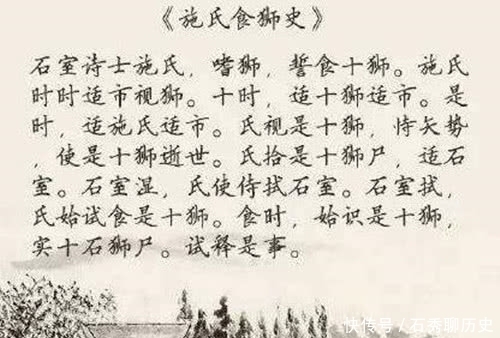 《施氏食狮史》
石室诗士施氏，嗜狮，誓食十狮。施氏
时时适市视狮。十时，适十狮适市。是
时，适施氏适市。氏视是十狮，恃矢势
，使是十狮逝世。氏拾是十狮尸，适石
室。石室湿，氏使侍拭石室。石室拭，
氏始试食是十狮。食时，始识是十狮，
实十石狮尸。试释是事。
快传号／石秀聊历史